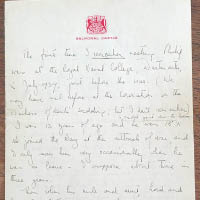 BALMORAL CASTLE
The first time I remember meeting Philip
was at the Royal Naval College, Dartmouth,
in July 1939, just before the war. (We
may have met before at the Coronation or the
Duchess of Kent's wedding, but I don't remember).
I was 13 years of age and he was 18
He joined the Navy at the outbreak of war, and
I only saw him very occasionally when he
was on leave - I suppose about twice in
three years.
Then when his uncle and aunt, Lord and